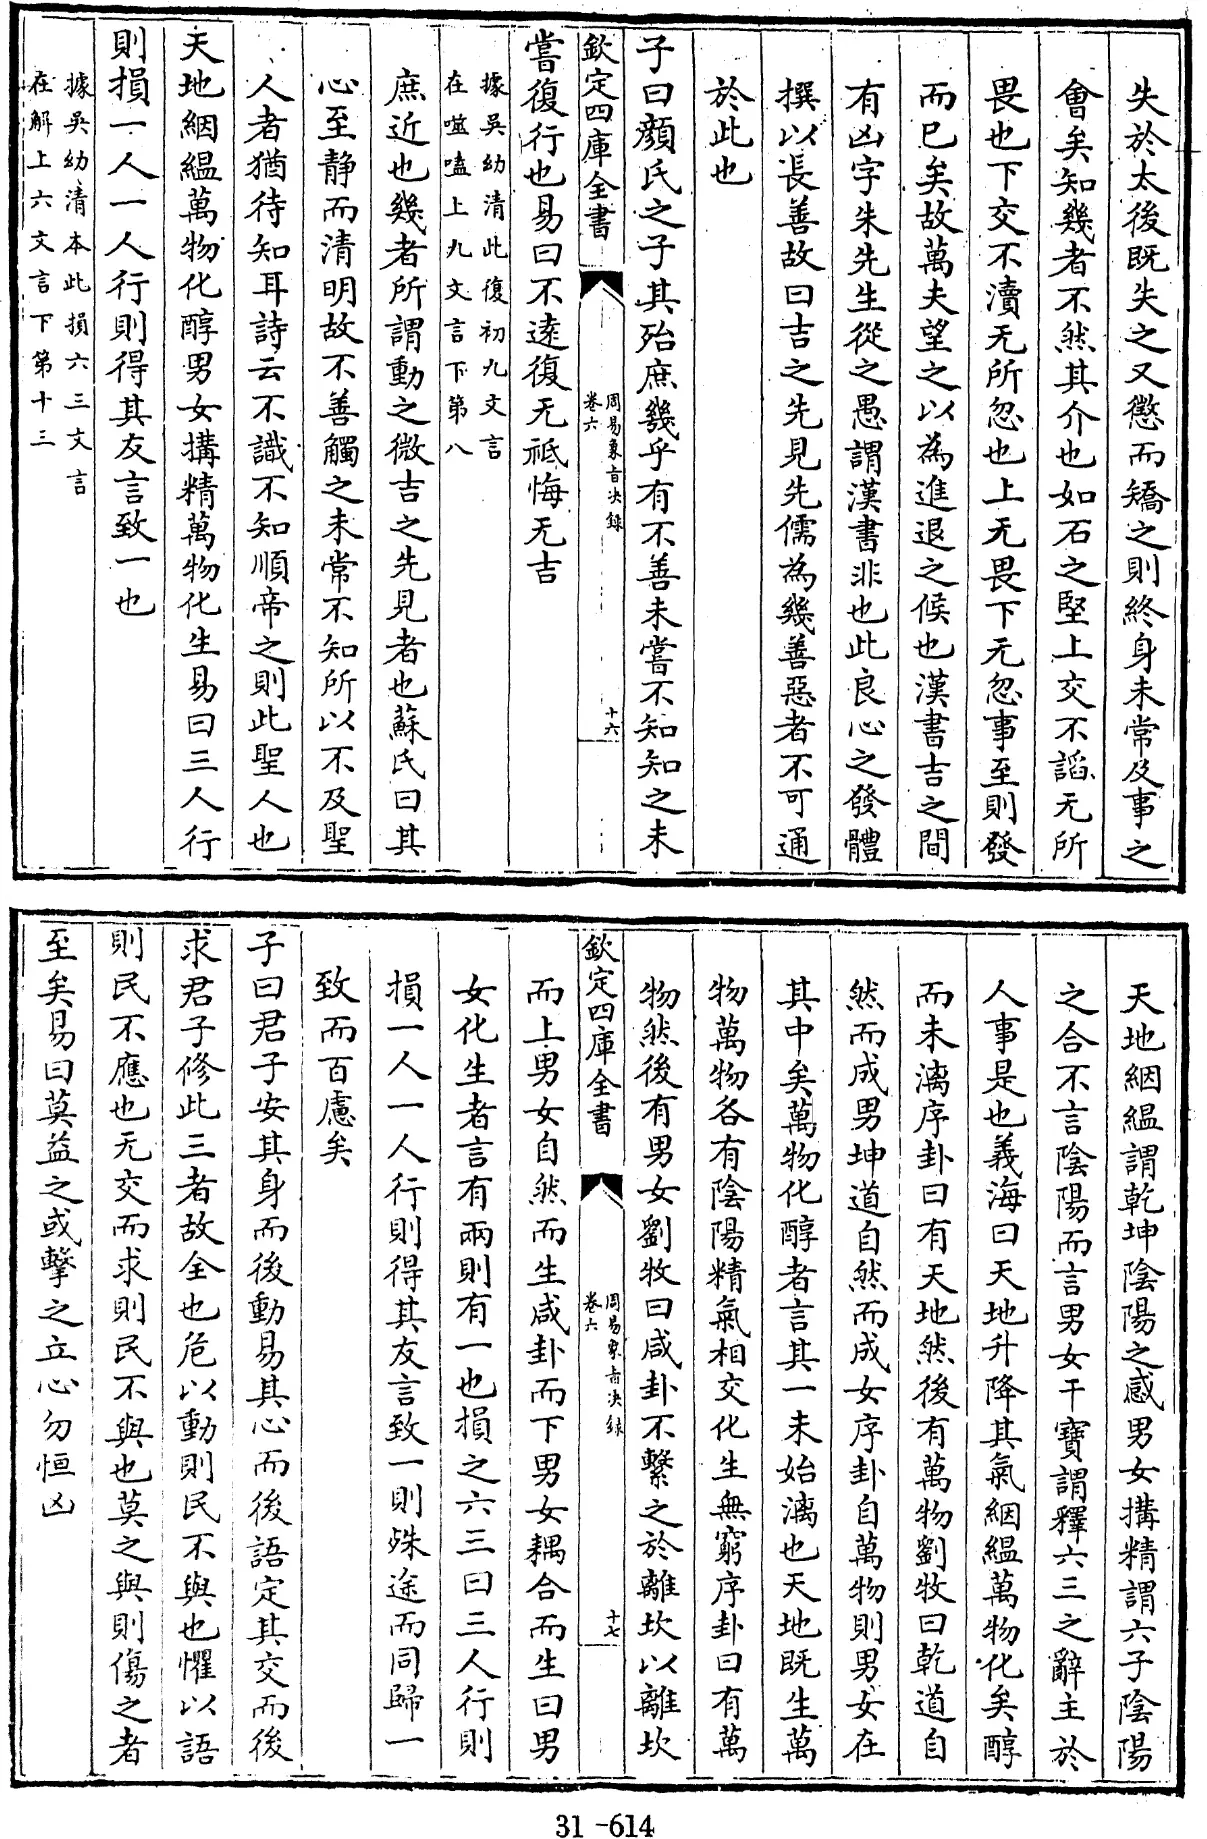 失於太後既失之又懲而矯之則終身未常及事之
會矣知幾者不然其介也如石之堅上交不謟无所
畏也下交不瀆无所忽也上无畏下无忽事至則發
而已矣故萬夫望之以為進退之候也漢書吉之間
有凶字朱先生從之愚謂漢書非也此良心之發體
撰以長善故曰吉之先見先儒為幾善惡者不可通
於此也
子曰顏氏之子其殆庶幾乎有不善未嘗不知知之未
欽定四庫全書
周易象旨决錄
卷六
十六
嘗復行也易曰不逺復无祗悔无吉
據吳幼清此復初九文言
在噬嗑上九文言下第八
庶近也幾者所謂動之微吉之先見者也蘇氏曰其
心至静而清明故不善觸之未常不知所以不及聖
人者猶待知耳詩云不識不知順帝之則此聖人也
天地絪緼萬物化醇男女搆精萬物化生易曰三人行
則損一人一人行則得其友言致一也
據吳幼清本此損六三文言
在解上六文言下第十三
天地絪緼謂乾坤隂陽之感男女搆精謂六子隂陽
之合不言隂陽而言男女干寶謂釋六三之辭主於
人事是也義海曰天地升降其氣絪緼萬物化矣醇
而未漓序卦曰有天地然後有萬物劉牧曰乾道自
然而成男坤道自然而成女序卦自萬物則男女在
其中矣萬物化醇者言其一未始漓也天地既生萬
物萬物各有隂陽精氣相交化生無窮序卦曰有萬
物然後有男女劉牧曰咸卦不繫之於離坎以離坎
欽定四庫全書
周易象旨决錄
卷六
十七
而上男女自然而生咸卦而下男女耦合而生曰男
女化生者言有兩則有一也損之六三曰三人行則
損一人一人行則得其友言致一則殊途而同歸一
致而百慮矣
子曰君子安其身而後動易其心而後語定其交而後
求君子修此三者故全也危以動則民不與也懼以語
則民不應也无交而求則民不與也莫之與則傷之者
至矣易曰莫益之或擊之立心勿恒凶
31-614